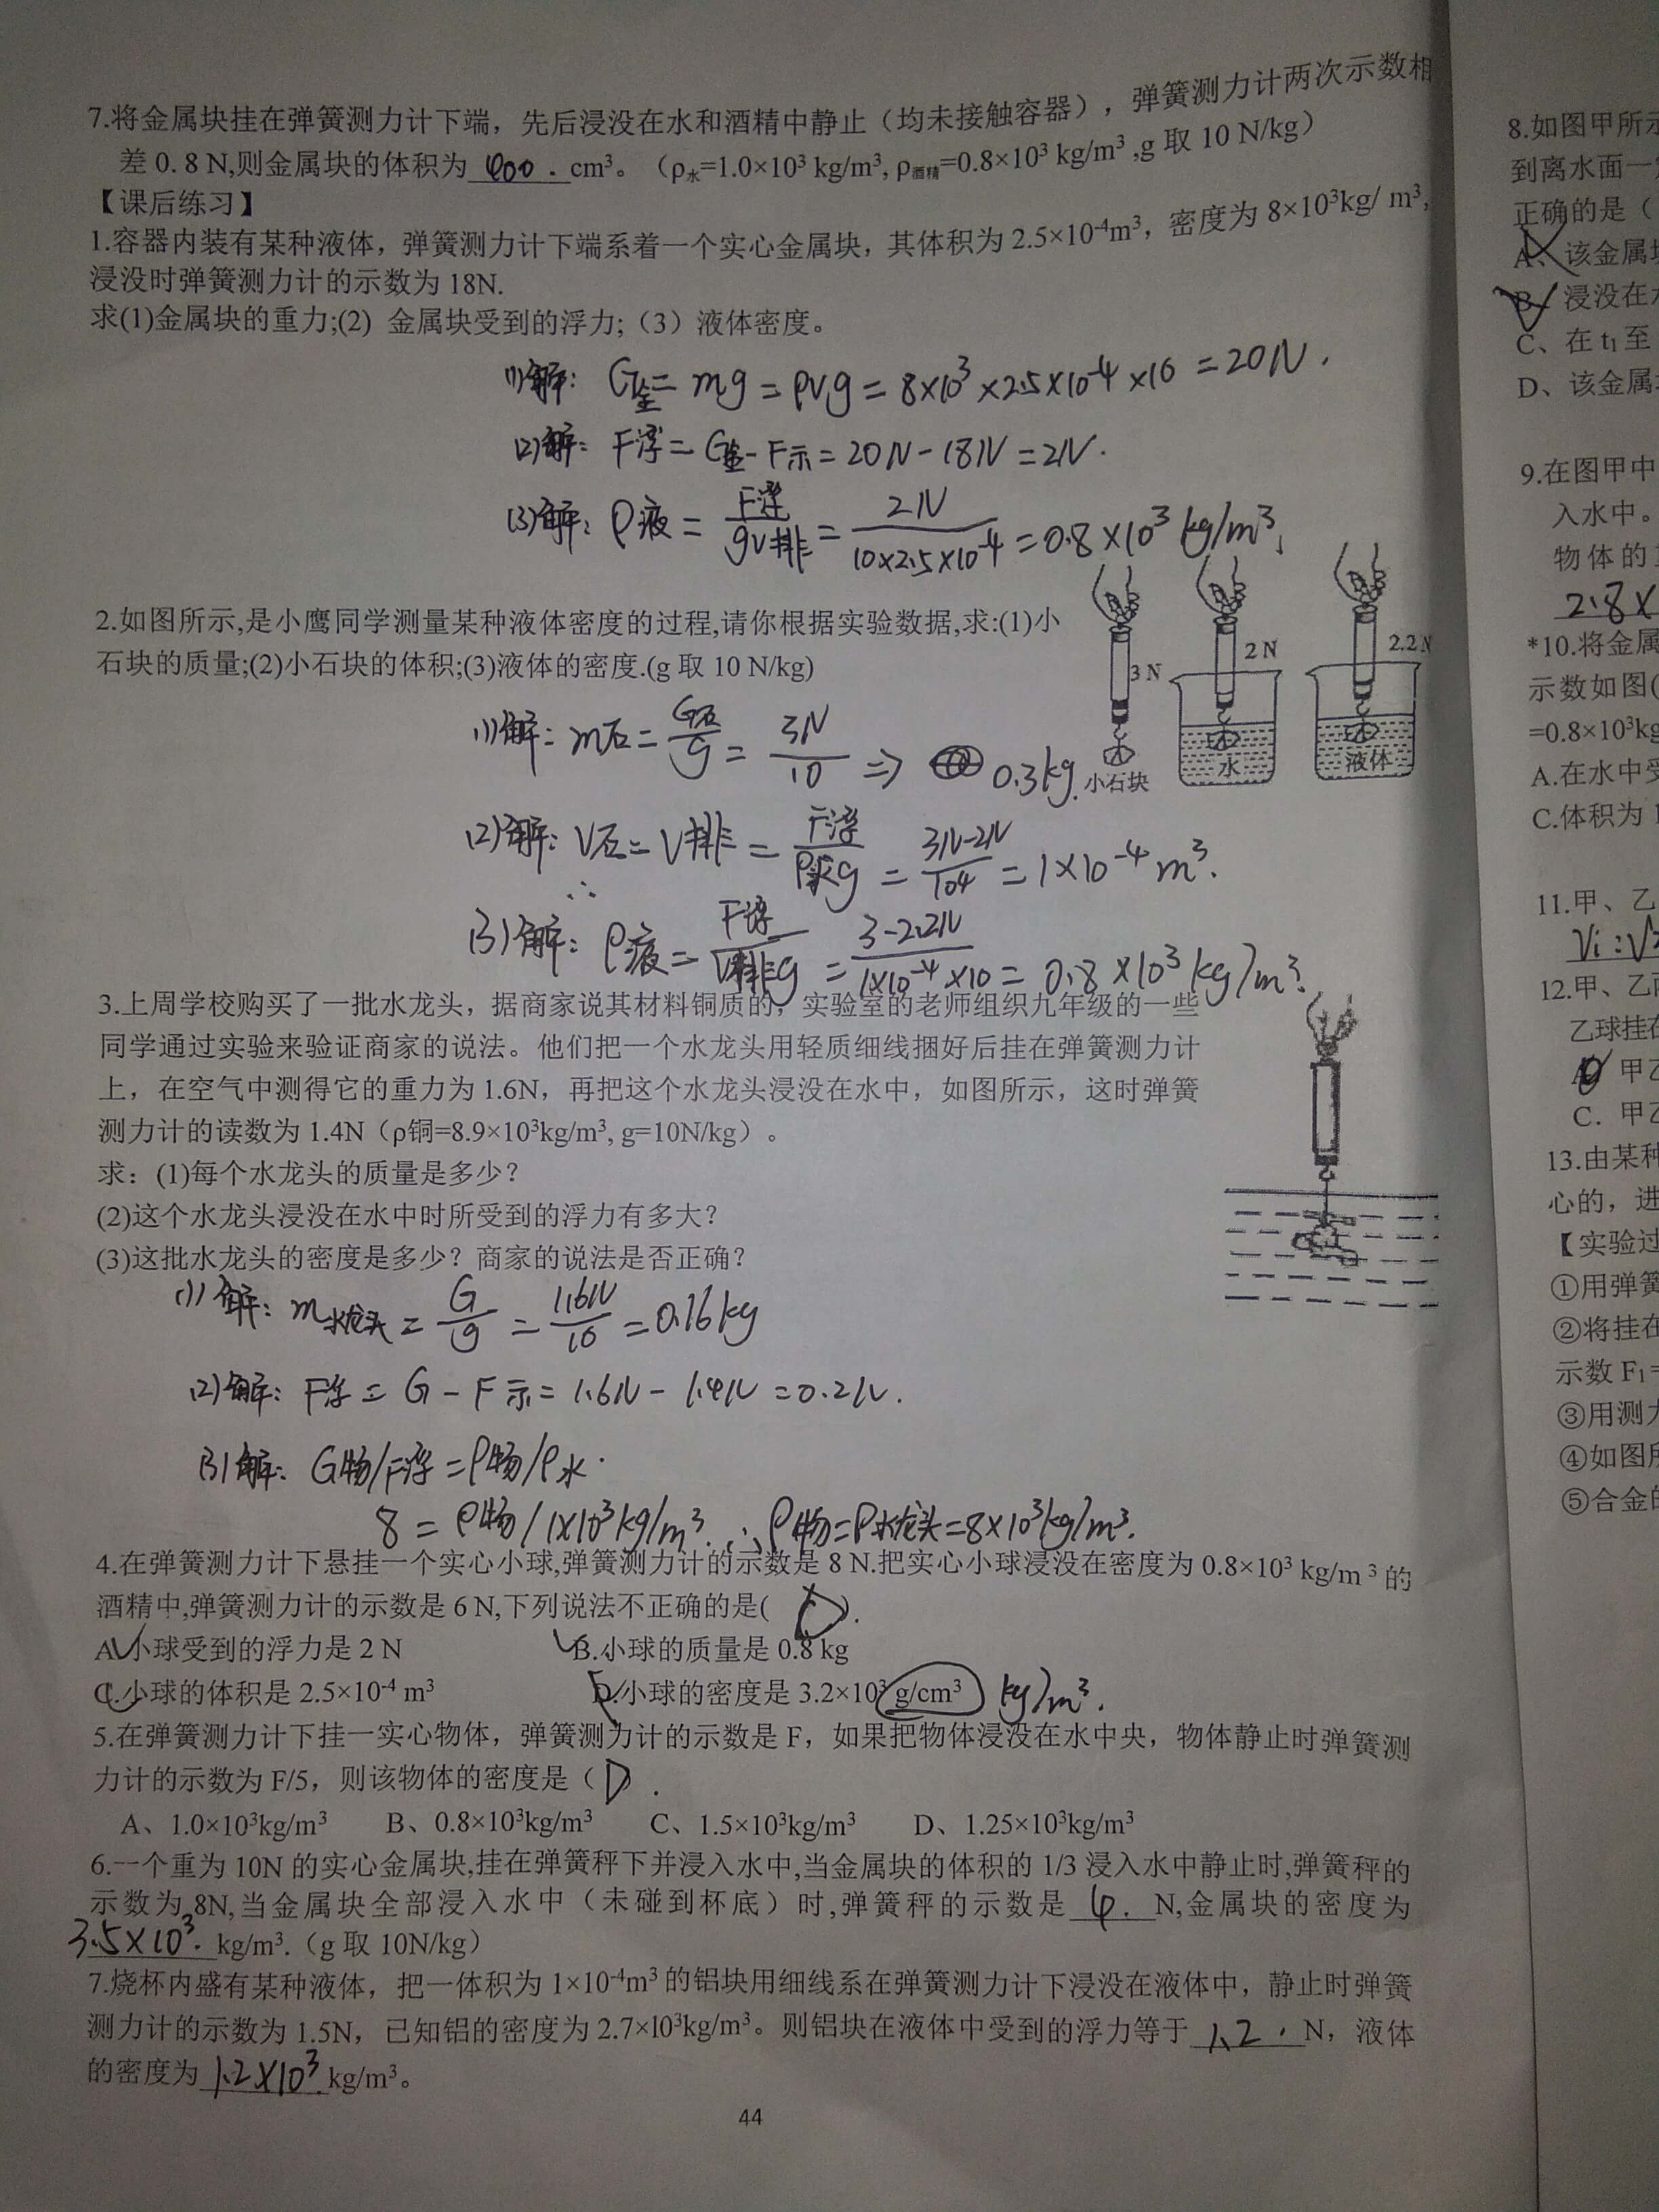 7.将金属块挂在弹簧测力计下端，先后浸没在水和酒精中静止（均未接触容器），弹簧测力计两次示数相
差0.8 N,则金属块的体积为 400. cm³。（ρ水=1.0×10³ kg/m³, ρ酒精=0.8×10³ kg/m³ ,g 取 10 N/kg）
【课后练习】
1.容器内装有某种液体，弹簧测力计下端系着一个实心金属块，其体积为 2.5×10⁻⁴m³，密度为 8×10³kg/ m³,
浸没时弹簧测力计的示数为 18N.
求(1)金属块的重力;(2) 金属块受到的浮力;（3）液体密度。
(1)解: G金= mg = ρvg = 8×10³ ×2.5×10⁻⁴ ×10 = 20N.
(2)解: F浮= G金-F示= 20N-18N=2N.
(3)解: ρ液 = F浮/gV排 = 2N/10×2.5×10⁻⁴ =0.8×10³ kg/m³.
2.如图所示,是小鹰同学测量某种液体密度的过程,请你根据实验数据,求:(1)小
石块的质量;(2)小石块的体积;(3)液体的密度.(g 取 10 N/kg)
3 N
2 N
2.2 N
小石块
水
液体
(1)解: m石= G石/g = 3N/10 ⇒ 0.3kg.
(2)解: V石= V排 = F浮/ρ水g = 3N-2N/10⁴ = 1×10⁻⁴ m³.
∴
(3)解: ρ液= F浮/V排g = 3-2.2N/1×10⁻⁴×10 = 0.8×10³ kg/m³.
3.上周学校购买了一批水龙头，据商家说其材料铜质的，实验室的老师组织九年级的一些
同学通过实验来验证商家的说法。他们把一个水龙头用轻质细线捆好后挂在弹簧测力计
上，在空气中测得它的重力为 1.6N，再把这个水龙头浸没在水中，如图所示，这时弹簧
测力计的读数为 1.4N（ρ铜=8.9×10³kg/m³, g=10N/kg）。
求：(1)每个水龙头的质量是多少？
(2)这个水龙头浸没在水中时所受到的浮力有多大？
(3)这批水龙头的密度是多少？商家的说法是否正确？
(1)解: m水龙头= G/g = 1.6N/10 =0.16kg
(2)解: F浮 = G - F示= 1.6N - 1.4N =0.2N.
(3)解: G物/F浮 =ρ物/ρ水.
8 = ρ物/1×10³kg/m³. ∴ρ物=ρ水龙头=8×10³kg/m³.
4.在弹簧测力计下悬挂一个实心小球,弹簧测力计的示数是 8 N.把实心小球浸没在密度为 0.8×10³ kg/m ³ 的
酒精中,弹簧测力计的示数是 6 N,下列说法不正确的是( D ).
A.小球受到的浮力是 2 N B.小球的质量是 0.8 kg
C.小球的体积是 2.5×10⁻⁴ m³ D.小球的密度是 3.2×10³ g/cm³ kg/m³.
5.在弹簧测力计下挂一实心物体，弹簧测力计的示数是 F，如果把物体浸没在水中央，物体静止时弹簧测
力计的示数为 F/5，则该物体的密度是（ D ）.
A、1.0×10³kg/m³ B、0.8×10³kg/m³ C、1.5×10³kg/m³ D、1.25×10³kg/m³
6.一个重为 10N 的实心金属块,挂在弹簧秤下并浸入水中,当金属块的体积的 1/3 浸入水中静止时,弹簧秤的
示数为 8N,当金属块全部浸入水中（未碰到杯底）时,弹簧秤的示数是 4. N,金属块的密度为
3.5×10³. kg/m³.（g 取 10N/kg）
7.烧杯内盛有某种液体，把一体积为 1×10⁻⁴m³ 的铝块用细线系在弹簧测力计下浸没在液体中，静止时弹簧
测力计的示数为 1.5N，已知铝的密度为 2.7×l0³kg/m³。则铝块在液体中受到的浮力等于 1.2. N，液体
的密度为 1.2×10³. kg/m³。
44
8.如图甲所示
到离水面一
正确的是（
A、该金属
B、浸没在
C、在 t₁至
D、该金属
9.在图甲中
入水中。
物体的
2.8×
*10.将金属
示数如图(
=0.8×10³kg
A.在水中受
C.体积为 1
11.甲、乙
12.甲、乙
乙球挂在
甲乙
C. 甲乙
13.由某种
心的，进
【实验过
①用弹簧
②将挂在
示数 F₁=
③用测力
④如图所
⑤合金的